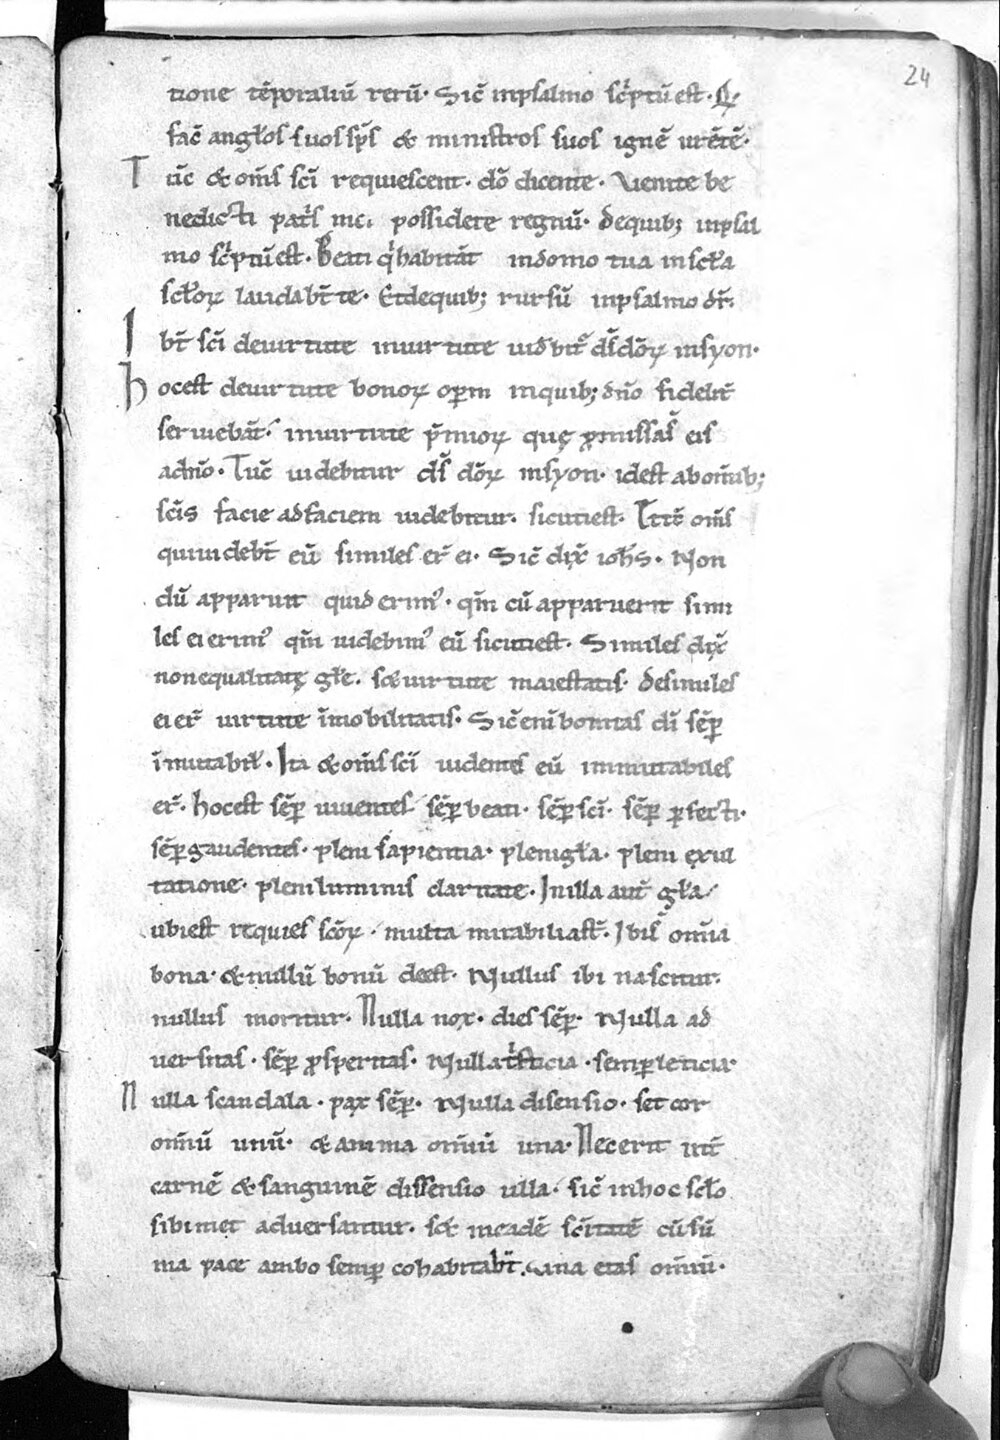 24
tione tēporaliū rerū. Sic̄ inpsalmo sc̄ptū est. Q̄
fac̄ angl̄os suos sp̄s & ministros suos ignē urētē.
Tūc & om̄s sc̄i requiescent. dō dicente. Venite be
nedicti pat̄s mei possidete regnū. dequib; inpsal
mo sc̄ptū est. Beati q̄ habitāt indomo tua insc̄la
sc̄loꝝ laudab̄t te. Et dequib; rursū inpsalmo dr̄.
Ib̄t sc̄i deuirtute inuirtute uidbit᷑ d̄s dōꝝ insyon.
hocest deuirtute bonoꝝ oꝑm inquib; dn̄o fidelit̄
seruiebāt. inuirtute p̄mioꝝ quę ꝓmissa s̄ eis
adn̄o. Tūc uidebitur d̄s dōꝝ insyon. idest abom̄ib;
sc̄is facie adfaciem uidebitur. sicuti est. It̄ om̄s
quiuideb̄t eū similes er̄t ei. Sic̄ dix̄ ioh̄s. Non
dū apparuit quid erim᷒. qm̄ cū apparuerit simi
les ei erim᷒ qm̄ uidebim᷒ eū sicuti est. Similes dix̄
non equalitatę gl̄e. sꝫ uirtute maiestatis. de similes
ei er̄t uirtute īmobilitatis. Sic̄ enī bonitas dī sēꝑ
īmutabil̄. Ita & om̄s sc̄i uidentes eū immutabiles
er̄t. hocest sēꝑ uiuentes sēꝑ beati. sēꝑ sc̄i. sēꝑ ꝑfecti.
sēꝑ gaudentes. pleni sapientia. pleni gl̄a. pleni exul
tatione. pleni luminis claritate. In illa aut̄ gl̄a
ubi est requies sc̄oꝝ. multa mirabilia st̄. Ibi s̄ om̄ia
bona. & nullū bonū deest. Nullus ibi nascitur.
nullus moritur. Nulla nox. dies sēꝑ. Nulla ad
uersitas. sēꝑ ꝓsperitas. Nulla t̄sticia. semꝑ leticia.
Nulla scandala. pax sēꝑ. Nulla disensio. set cor
om̄iū unū. & anima om̄iū una. Nec erit int̄
carnē & sanguinē dissensio ulla. sic̄ inhoc sc̄lo
sibimet aduersantur. sꝫ ineadē sc̄itatē cū sū
ma pace ambo semꝑ cohabitab̄t. Una etas om̄iū.